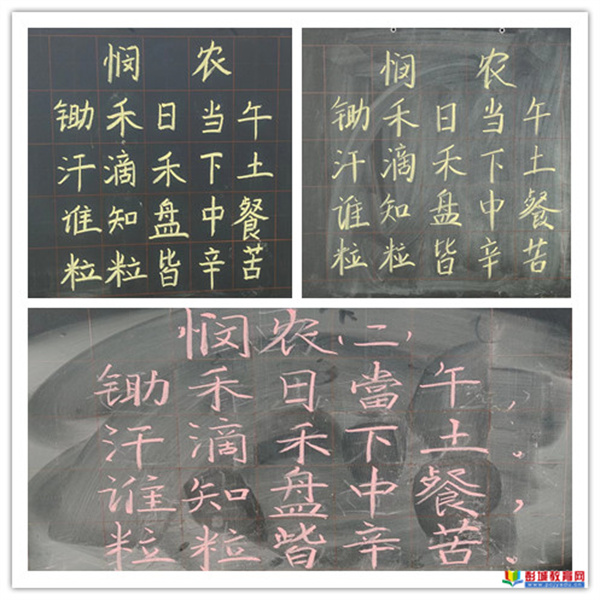 悯农
锄禾日当午
汗滴禾下土
谁知盘中餐
粒粒皆辛苦
悯农
锄禾日当午
汗滴禾下土
谁知盘中餐
粒粒皆辛苦
悯农(二)
锄禾日當午，
汗滴禾下土。
谁知盘中餐，
粒粒皆辛苦。
彭城教育网